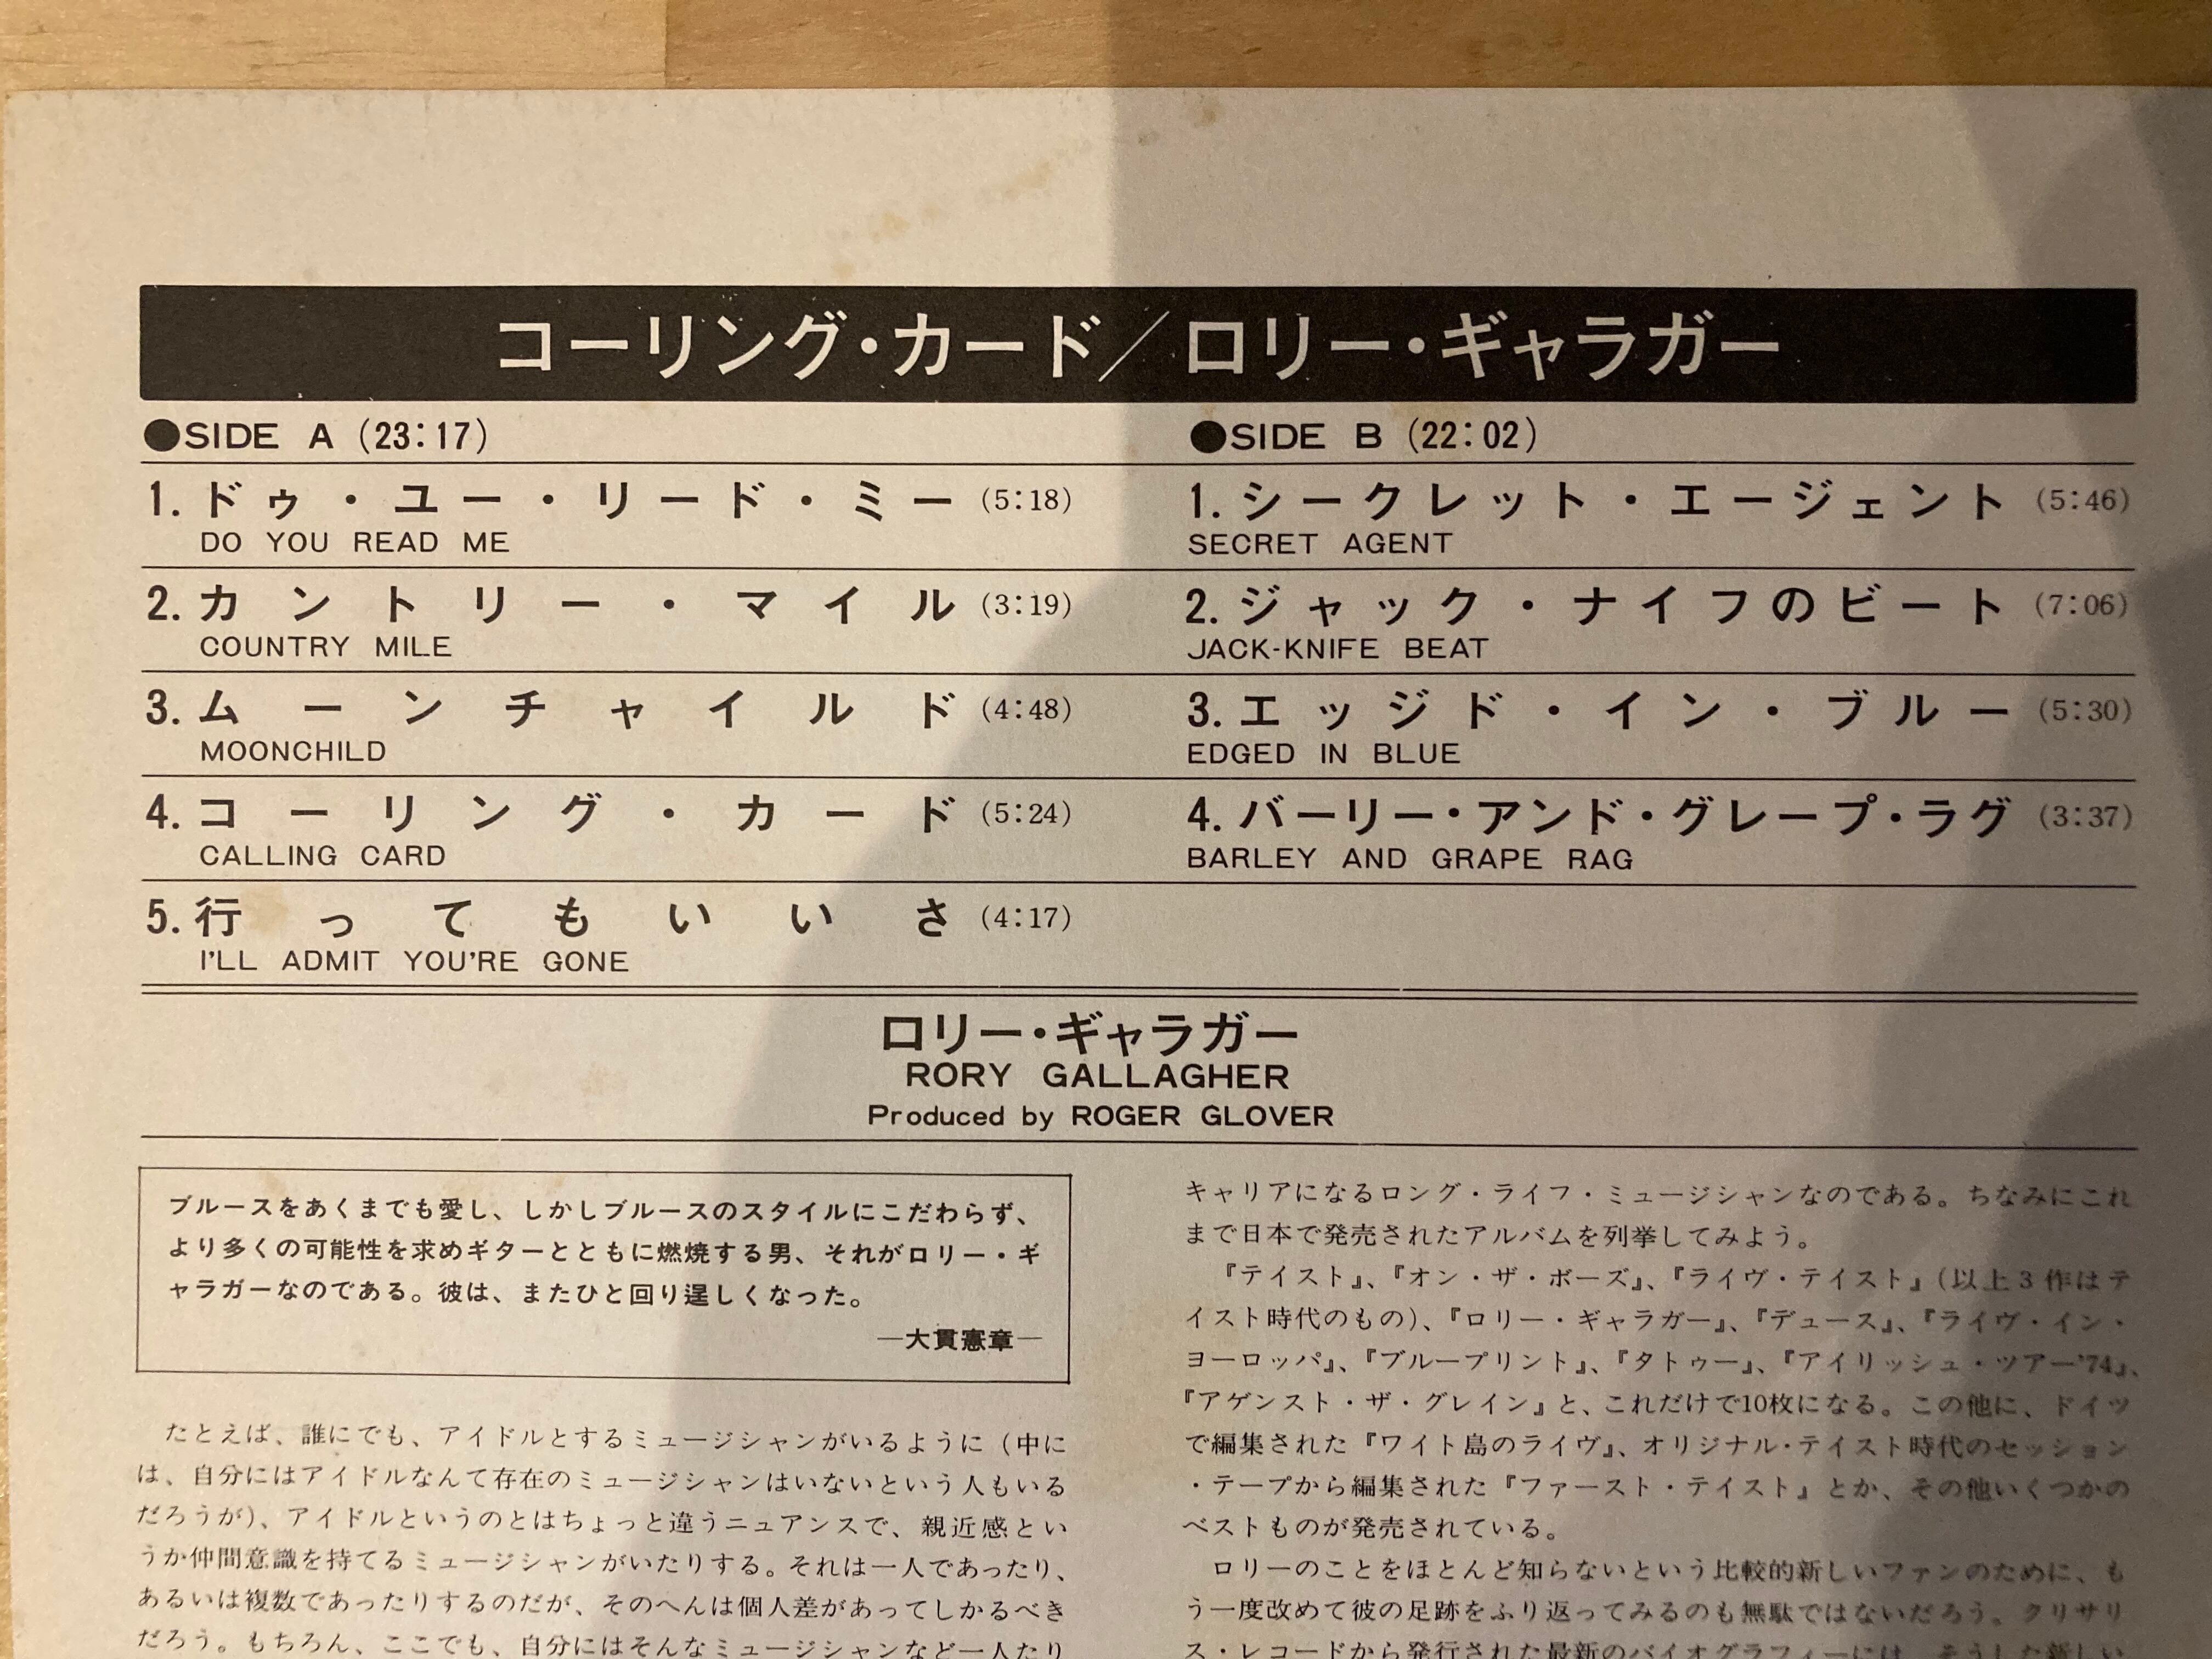 コーリング・カード／ロリー・ギャラガー
●SIDE A (23:17)
1. ドゥ・ユー・リード・ミー (5:18)
DO YOU READ ME
2. カントリー・マイル (3:19)
COUNTRY MILE
3. ムーンチャイルド (4:48)
MOONCHILD
4. コーリング・カード (5:24)
CALLING CARD
5. 行ってもいいさ (4:17)
I'LL ADMIT YOU'RE GONE
●SIDE B (22:02)
1. シークレット・エージェント (5:46)
SECRET AGENT
2. ジャック・ナイフのビート (7:06)
JACK-KNIFE BEAT
3. エッジド・イン・ブルー (5:30)
EDGED IN BLUE
4. バーリー・アンド・グレープ・ラグ (3:37)
BARLEY AND GRAPE RAG
ロリー・ギャラガー
RORY GALLAGHER
Produced by ROGER GLOVER
ブルースをあくまでも愛し、しかしブルースのスタイルにこだわらず、
より多くの可能性を求めギターとともに燃焼する男、それがロリー・ギ
ャラガーなのである。彼は、またひと回り逞しくなった。
—大貫憲章—
たとえば、誰にでも、アイドルとするミュージシャンがいるように（中に
は、自分にはアイドルなんて存在のミュージシャンはいないという人もいる
だろうが）、アイドルというのとはちょっと違うニュアンスで、親近感とい
うか仲間意識を持てるミュージシャンがいたりする。それは一人であったり、
あるいは複数であったりするのだが、そのへんは個人差があってしかるべき
だろう。もちろん、ここでも、自分にはそんなミュージシャンなど一人たり
キャリアになるロング・ライフ・ミュージシャンなのである。ちなみにこれ
まで日本で発売されたアルバムを列挙してみよう。
『テイスト』、『オン・ザ・ボーズ』、『ライヴ・テイスト』（以上3作はテ
イスト時代のもの）、『ロリー・ギャラガー』、『デュース』、『ライヴ・イン・
ヨーロッパ』、『ブループリント』、『タトゥー』、『アイリッシュ・ツアー'74』、
『アゲンスト・ザ・グレイン』と、これだけで10枚になる。この他に、ドイツ
で編集された『ワイト島のライヴ』、オリジナル・テイスト時代のセッション
・テープから編集された『ファースト・テイスト』とか、その他いくつかの
ベストものが発売されている。
ロリーのことをほとんど知らないという比較的新しいファンのために、も
う一度改めて彼の足跡をふり返ってみるのも無駄ではないだろう。クリサリ
ス・レコードから発行された最新のバイオグラフィーには、そうした新しい